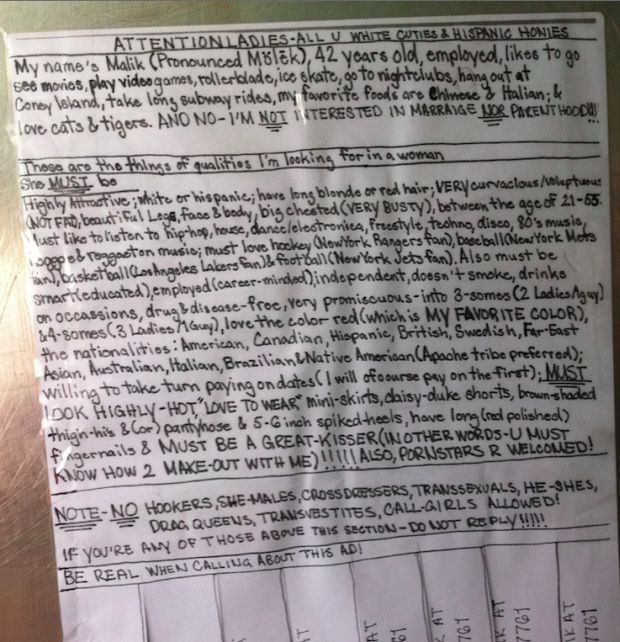 ATTENTION LADIES-ALL U WHITE CUTIES & HISPANIC HONIES
My name's Malik (Pronounced Mölēk), 42 years old, employed, likes to go
see movies, play video games, rollerblade, ice skate, go to nightclubs, hang out at
Coney Island, take long subway rides, my favorite foods are Chinese & Italian; &
love cats & tigers. AND NO-I'M NOT INTERESTED IN MARRAIGE NOR PARENTHOOD!!!
These are the things of qualities I'm looking for in a woman
She MUST be
Highly Attractive; White or hispanic; have long blonde or red hair; VERY curvacious/voluptuous
(NOT FAT), beautiful Legs, face & body, big chested (VERY BUSTY), between the age of 21-55.
Must like to listen to hip-hop, house, dance/electronica, freestyle, techno, disco, 80's music,
reggae & reggaeton music; must love hockey (New York Rangers fan), baseball (New York Mets
fan), basketball (Los Angeles Lakers fan) & football (New York Jets fan). Also must be
smart (educated), employed (career-minded); independent, doesn't smoke, drinks
on occassions, drug & disease-free, very promiscuous-into 3-somes (2 Ladies/1 guy)
& 4-somes (3 Ladies/1 Guy), love the color red (which is MY FAVORITE COLOR),
the nationalities: American, Canadian, Hispanic, British, Swedish, Far-East
Asian, Australian, Italian, Brazilian & Native American (Apache tribe preferred);
willing to take turn paying on dates (I will ofcourse pay on the first); MUST
LOOK HIGHLY-HOT, "LOVE TO WEAR" mini-skirts, daisy-duke shorts, brown-shaded
thigh-hi's & (or) pantyhose & 5-6 inch spiked-heels, have long (red polished)
fingernails & MUST BE A GREAT-KISSER (IN OTHER WORDS-U MUST
KNOW HOW 2 MAKE-OUT WITH ME)!!!!! ALSO, PORNSTARS R WELCOMED!
NOTE-NO HOOKERS, SHE-MALES, CROSSDRESSERS, TRANSSEXUALS, HE-SHES,
DRAG QUEENS, TRANSVESTITES, CALL-GIRLS ALLOWED!
IF YOU'RE ANY OF THOSE ABOVE THIS SECTION-DO NOT REPLY!!!!!
BE REAL WHEN CALLING ABOUT THIS AD!
K AT
7761
K AT
7761
K AT
7761